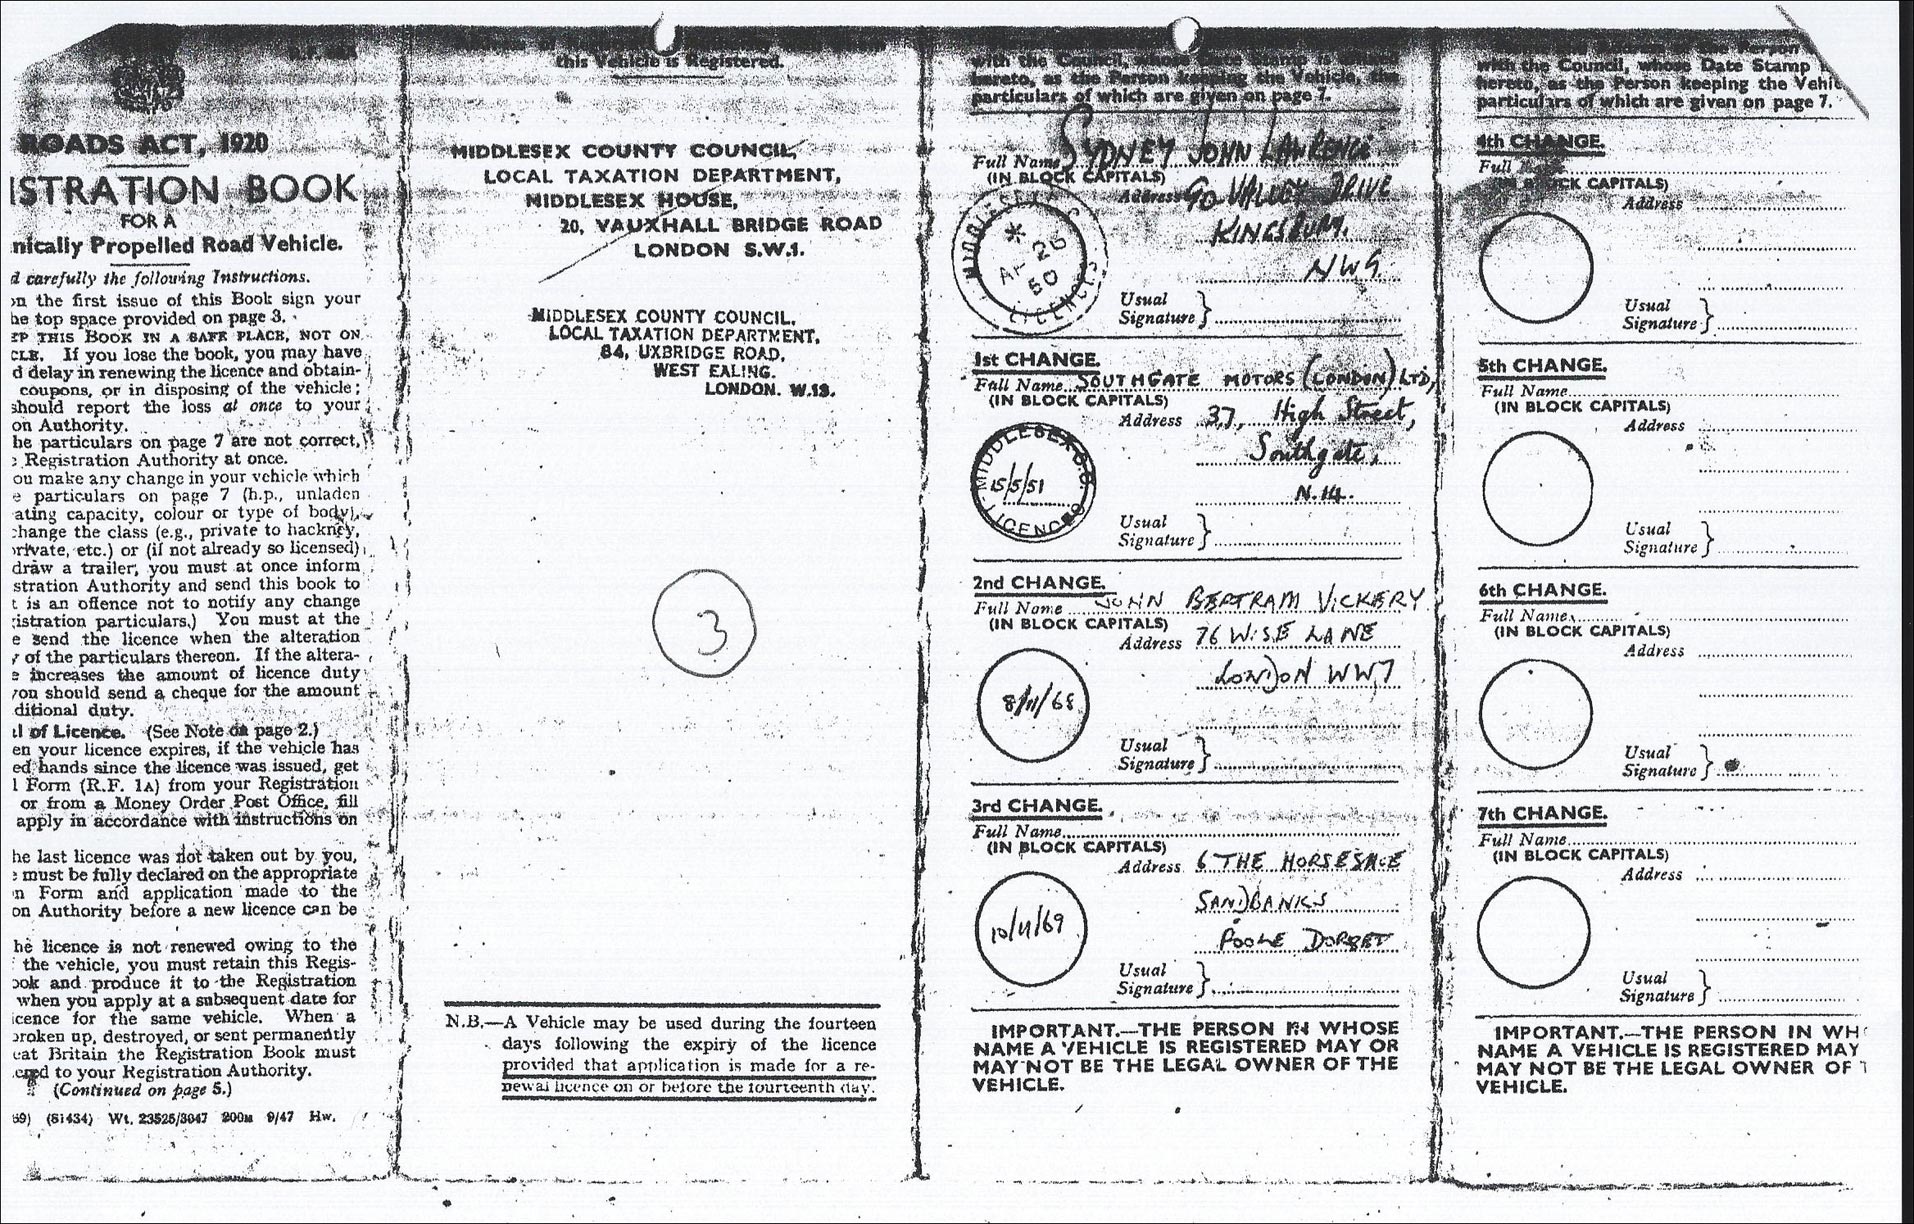 ROADS ACT, 1920
ISTRATION BOOK
FOR A
nically Propelled Road Vehicle.
d carefully the following Instructions.
on the first issue of this Book sign your
he top space provided on page 3.
EP THIS BOOK IN A SAFE PLACE, NOT ON
CLE. If you lose the book, you may have
d delay in renewing the licence and obtain-
coupons, or in disposing of the vehicle;
should report the loss at once to your
on Authority.
he particulars on page 7 are not correct,
Registration Authority at once.
ou make any change in your vehicle which
e particulars on page 7 (h.p., unladen
ating capacity, colour or type of body),
change the class (e.g., private to hackney,
private, etc.) or (if not already so licensed)
draw a trailer, you must at once inform
stration Authority and send this book to
t is an offence not to notify any change
istration particulars.) You must at the
e send the licence when the alteration
y of the particulars thereon. If the altera-
e increases the amount of licence duty
you should send a cheque for the amount
ditional duty.
l of Licence. (See Note on page 2.)
en your licence expires, if the vehicle has
ed hands since the licence was issued, get
l Form (R.F. 1A) from your Registration
or from a Money Order Post Office, fill
apply in accordance with instructions on
he last licence was not taken out by you,
e must be fully declared on the appropriate
n Form and application made to the
on Authority before a new licence can be
he licence is not renewed owing to the
the vehicle, you must retain this Regis-
ook and produce it to the Registration
when you apply at a subsequent date for
icence for the same vehicle. When a
broken up, destroyed, or sent permanently
eat Britain the Registration Book must
ered to your Registration Authority.
(Continued on page 5.)
69) (81434) Wt. 23525/3047 200M 9/47 Hw.
this Vehicle is Registered.
MIDDLESEX COUNTY COUNCIL,
LOCAL TAXATION DEPARTMENT,
MIDDLESEX HOUSE,
20, VAUXHALL BRIDGE ROAD
LONDON S.W.1.
MIDDLESEX COUNTY COUNCIL,
LOCAL TAXATION DEPARTMENT,
84, UXBRIDGE ROAD,
WEST EALING.
LONDON. W.13.
3
N.B.—A Vehicle may be used during the fourteen
days following the expiry of the licence
provided that application is made for a re-
newal licence on or before the fourteenth day.
with the Council, whose Date Stamp is affixed
hereto, as the Person keeping the Vehicle, the
particulars of which are given on page 7.
Full Name SYDNEY JOHN LAWRENCE
(IN BLOCK CAPITALS)
Address 90 VALLEY DRIVE
KINGSBURY.
NW9.
MIDDLESEX C.C. LICENCES
AP 26
50
Usual
Signature
1st CHANGE.
Full Name SOUTHGATE MOTORS (LONDON) LTD,
(IN BLOCK CAPITALS)
Address 37, High Street,
Southgate,
N.14.
MIDDLESEX C.C. LICENCES
15/5/51
Usual
Signature
2nd CHANGE.
Full Name JOHN BERTRAM VICKERY
(IN BLOCK CAPITALS)
Address 76 WISE LANE
LONDON NW7
8/11/68
Usual
Signature
3rd CHANGE.
Full Name
(IN BLOCK CAPITALS)
Address 6 THE HORSESHOE
SANDBANKS
POOLE DORSET
10/11/69
Usual
Signature
IMPORTANT.—THE PERSON IN WHOSE
NAME A VEHICLE IS REGISTERED MAY OR
MAY NOT BE THE LEGAL OWNER OF THE
VEHICLE.
with the Council, whose Date Stamp
hereto, as the Person keeping the Vehic
particulars of which are given on page 7.
4th CHANGE.
Full Name
(IN BLOCK CAPITALS)
Address
Usual
Signature
5th CHANGE.
Full Name
(IN BLOCK CAPITALS)
Address
Usual
Signature
6th CHANGE.
Full Name
(IN BLOCK CAPITALS)
Address
Usual
Signature
7th CHANGE.
Full Name
(IN BLOCK CAPITALS)
Address
Usual
Signature
IMPORTANT.—THE PERSON IN WHO
NAME A VEHICLE IS REGISTERED MAY
MAY NOT BE THE LEGAL OWNER OF T
VEHICLE.